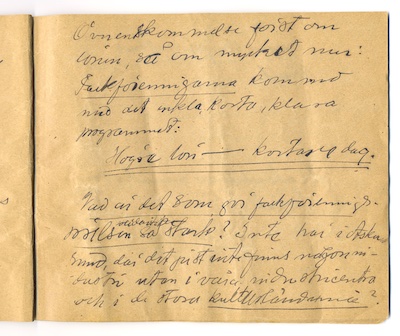 överenskommelse först om
lönen, så om mycket mer:
Fackföreningarna kom med
med det enkla, korta, klara
programmet:
Högre lön — kortare dag.
Vad är det som gör fackförenings-
rörelsen så stark? Inte här i
sund, där det just inte finns någon in-
dustri utan i våra industricentra
och i de stora kulturländerna?